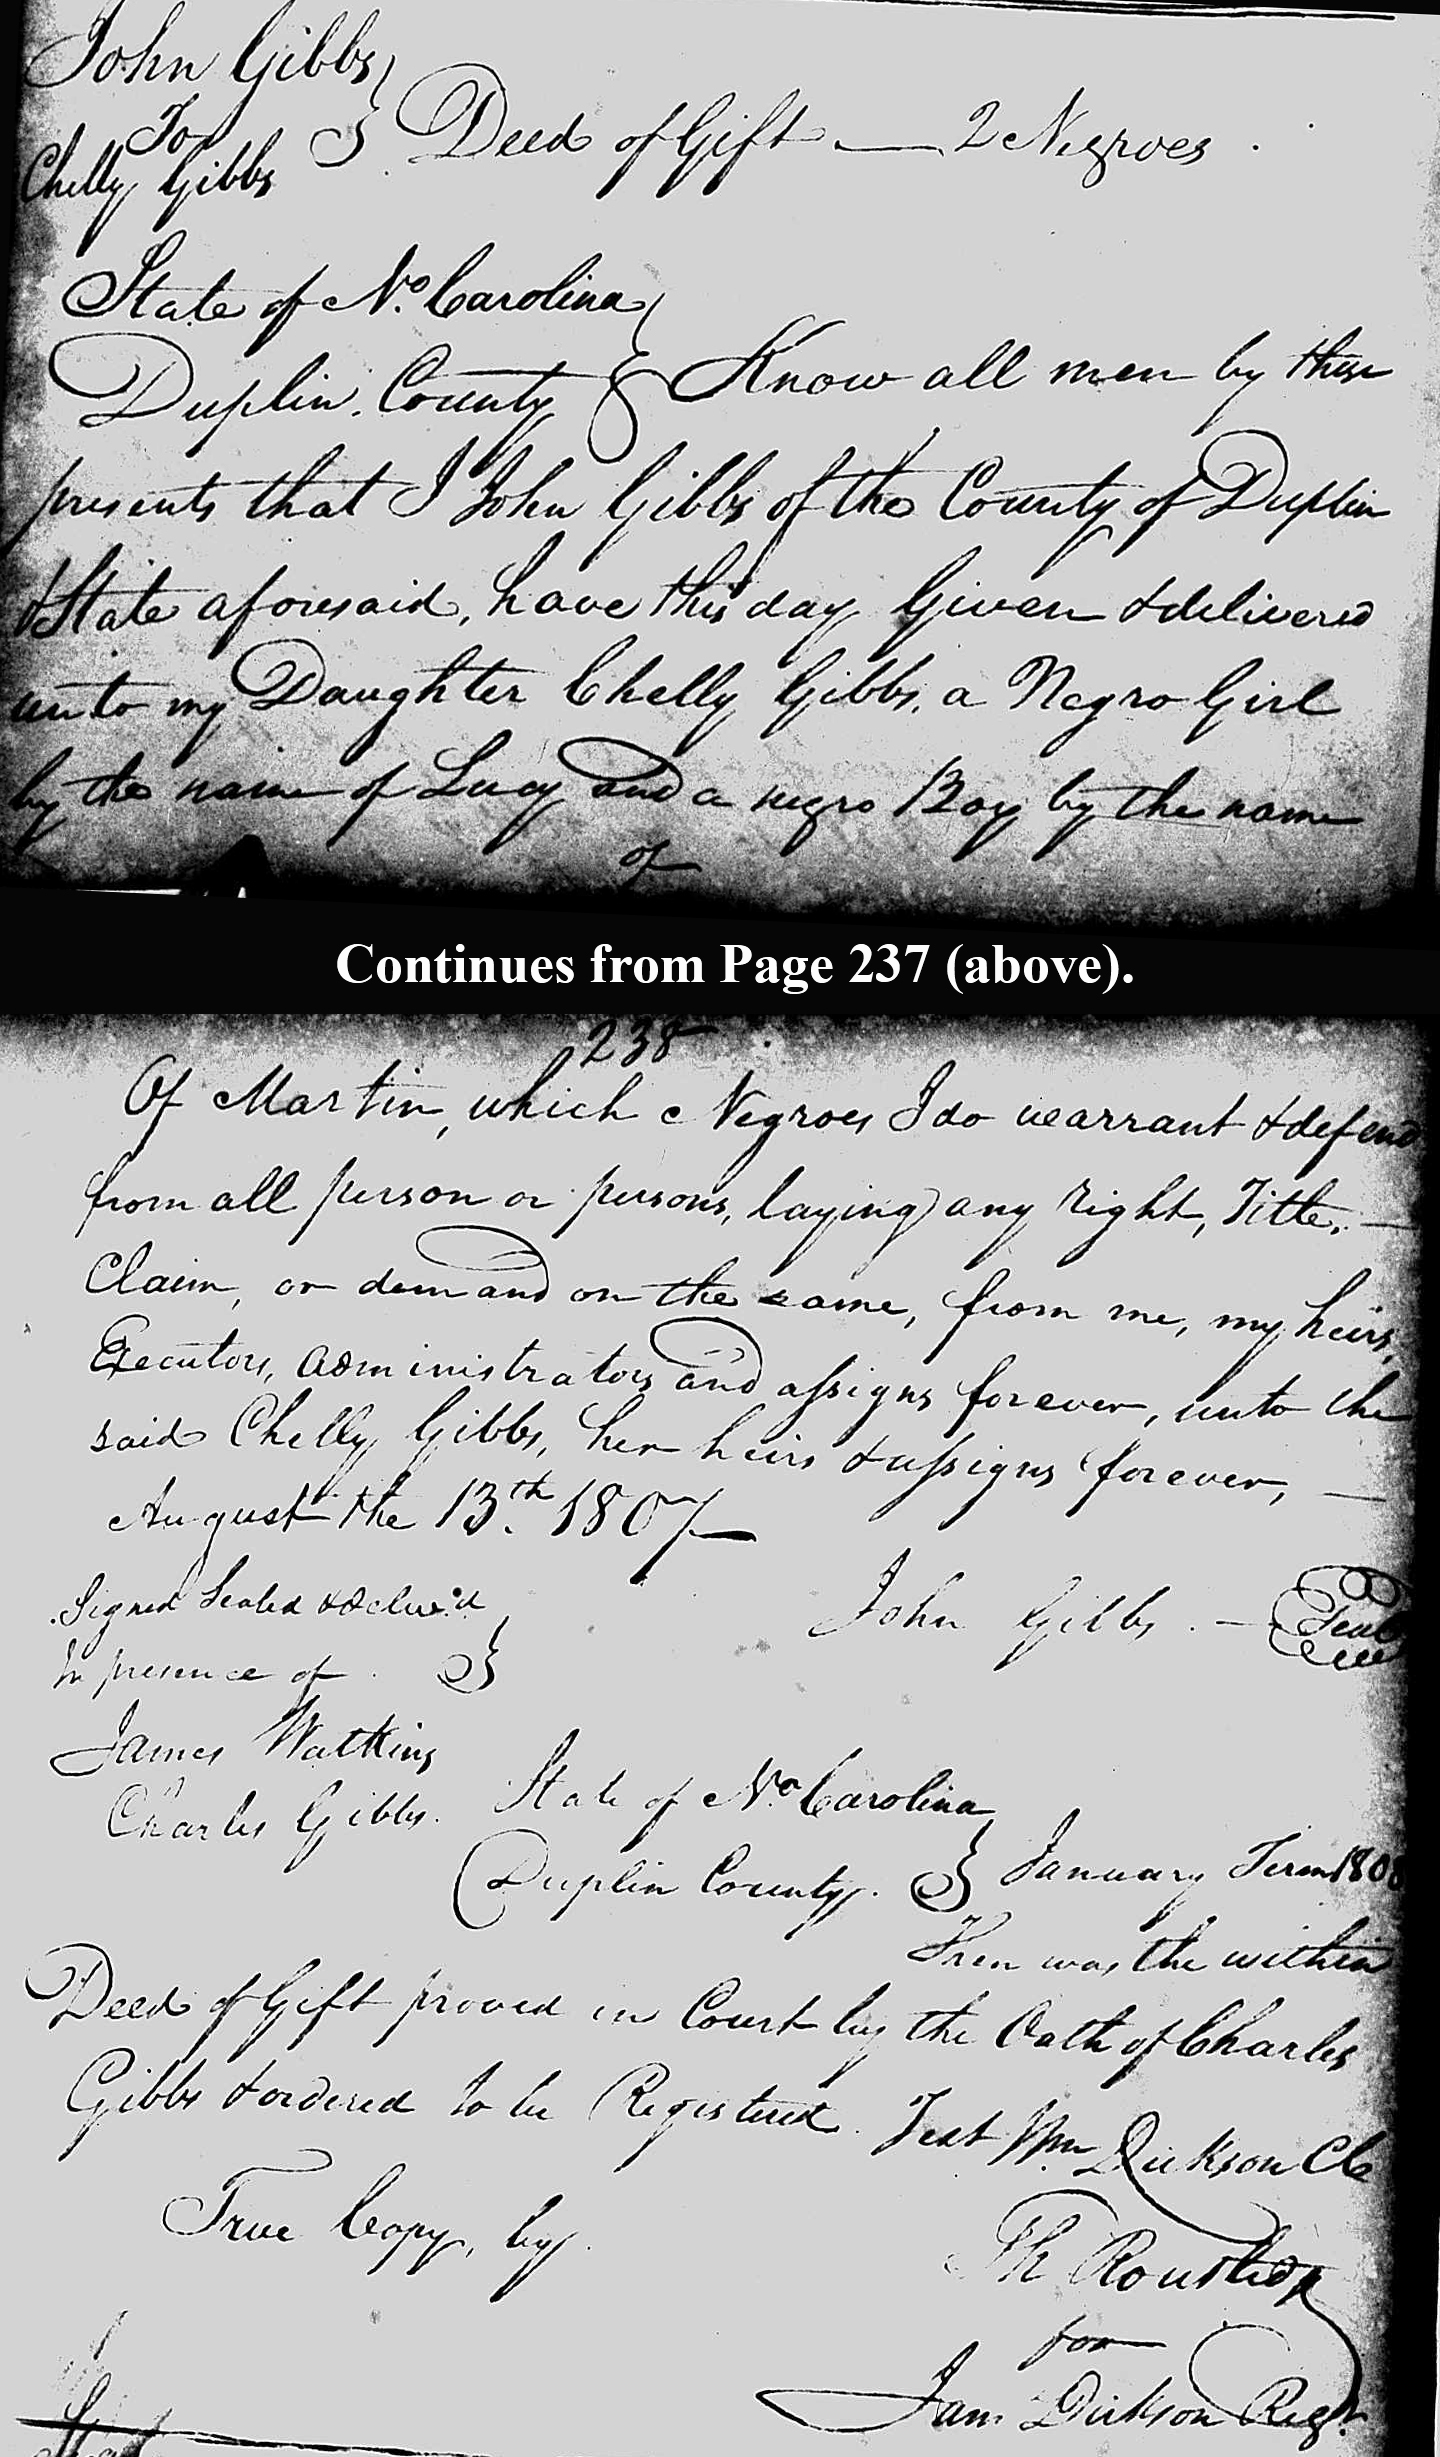 John Gibbs
To } Deed of Gift — 2 Negroes
Chelly Gibbs
State of No. Carolina
Duplin County } Know all men by these
presents that I John Gibbs of the County of Duplin
& State aforesaid, have this day Given & delivered
unto my Daughter Chelly Gibbs, a Negro Girl
by the name of Lucy and a negro Boy by the name
of
Continues from Page 237 (above).
238
Of Martin, which Negroes I do warrant & defend
from all person or persons, laying any right, Title, —
Claim, or demand on the same, from me, my heirs,
Executors, administrators and assigns forever, unto the
said Chelly Gibbs, her heirs & assigns forever, —
August the 13th. 1807 —
Signed Sealed & Deliver'd
In presence of }
John Gibbs. — Seal
James Watkins
Charles Gibbs.
State of No Carolina
Duplin County. } January Term 1808
Then was the within
Deed of Gift proved in Court by the Oath of Charles
Gibbs & ordered to be Registered. Test Wm Dickson Cl
True Copy, by
Th Routledge
for
Jam. Dickson Regr.